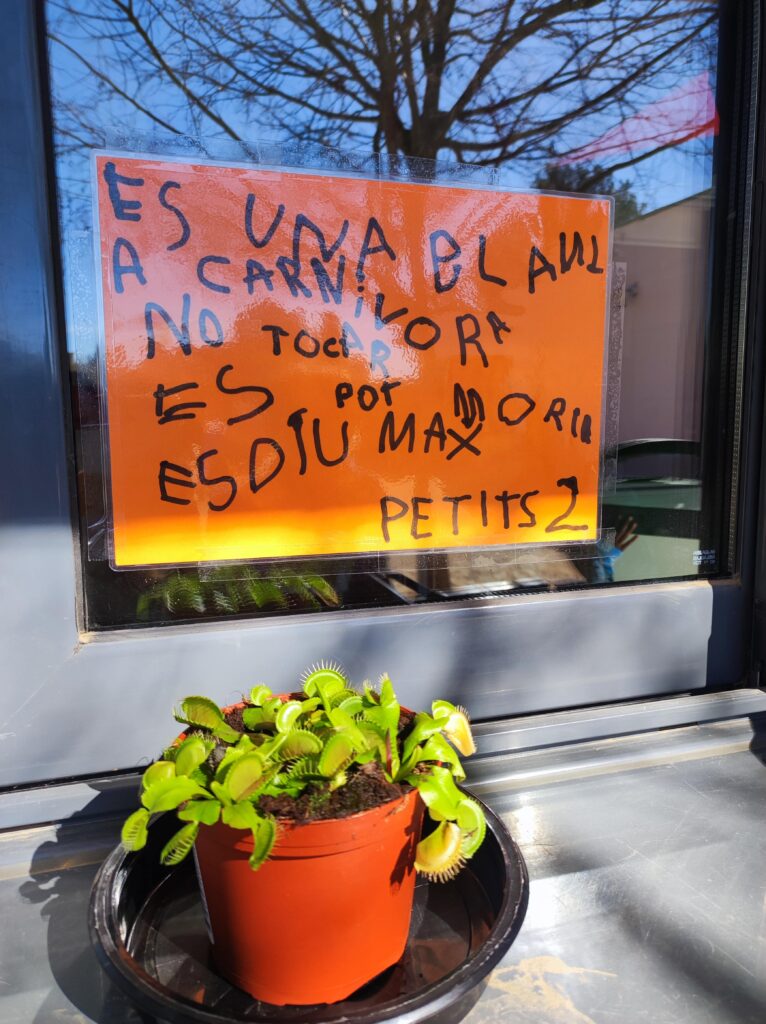 ES UNA BLANT
A CARNIVORA
NO TOCAR
ES POT MORIR
ES DIU MAX
PETITS 2